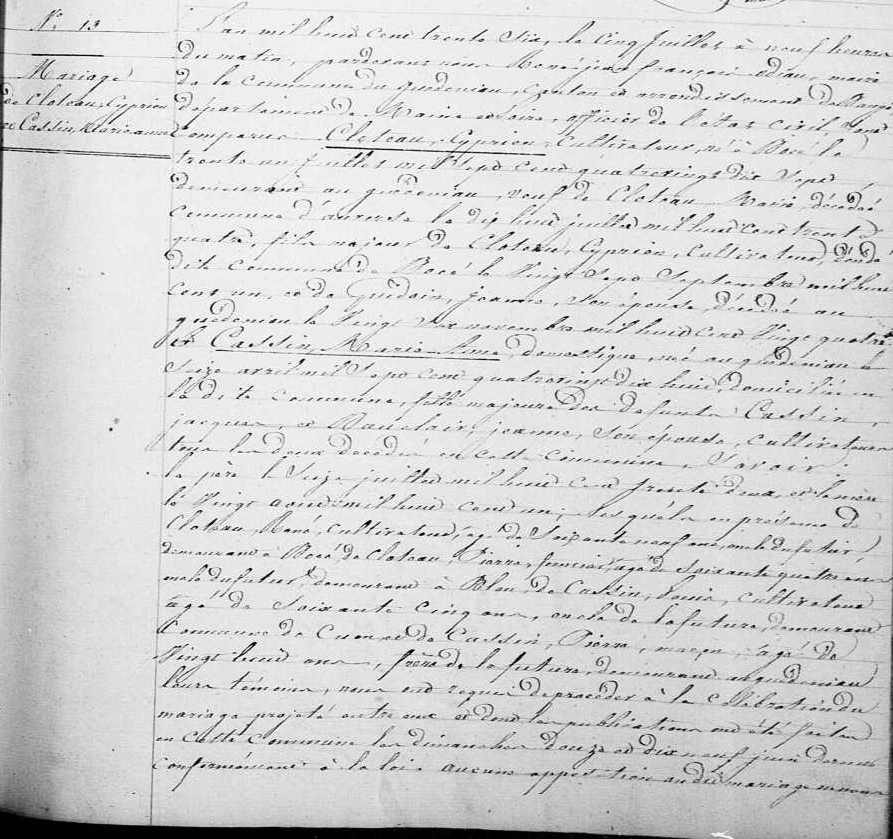 N° 13
Mariage
de Cloteau, Cyprien
et Cassin, Marie anne
L'an mil huit cent trente Six, le cinq Juillet à neuf heures
du matin, pardevant nous René jean françois maire
de la commune du guédeniau, Canton et arrondissement de Baugé
département de Maine et Loire, officier de l'état civil, sont
comparus Cloteau, Cyprien, Cultivateur, né à Bocé le
trente un juillet mil Sept cent quatrevingt dix Sept,
demeurant au guédeniau, veuf de Cloteau Marie, décédée
commune d' le dix huit juillet mil huit cent trente
quatre, fils majeur de Cloteau, Cyprien, Cultivateur, décédé
dite commune de Bocé le Vingt Sept Septembre mil huit
cent un, et de jeanne, Son épouse, décédée au
guédeniau le Vingt novembre mil huit cent Vingt quatre
et Cassin, Marie Anne, domestique, née au guédeniau le
Seize avril mil Sept cent quatrevingt dix huit, domiciliée en
la dite commune, fille majeure des defunts Cassin,
jacques, et jeanne, Son épouse, cultivateurs
tous les deux décédés en cette commune, Savoir:
le père le Seize juillet mil huit cent trente deux, et la mère
le Vingt août mil huit cent un; lesquels en présence de
Cloteau, René, cultivateur, agé de Soixante neuf ans, oncle du futur,
demeurant à Bocé, de Cloteau, Pierre, fermier, agé de Soixante quatre ans
oncle du futur, demeurant à Blou, de Cassin, Louis, cultivateur
agé de Soixante cinq ans, oncle de la future, demeurant
commune de Cuon et de Cassin, Pierre, maçon, agé de
Vingt huit ans, frère de la future, demeurant au guédeniau
leurs témoins, nous ont requis de procéder à la célébration du
mariage projeté entre eux et dont les publications ont été faites
en cette commune les dimanches douze et dix neuf juin dernier
conformément à la loi: aucune opposition au dit mariage